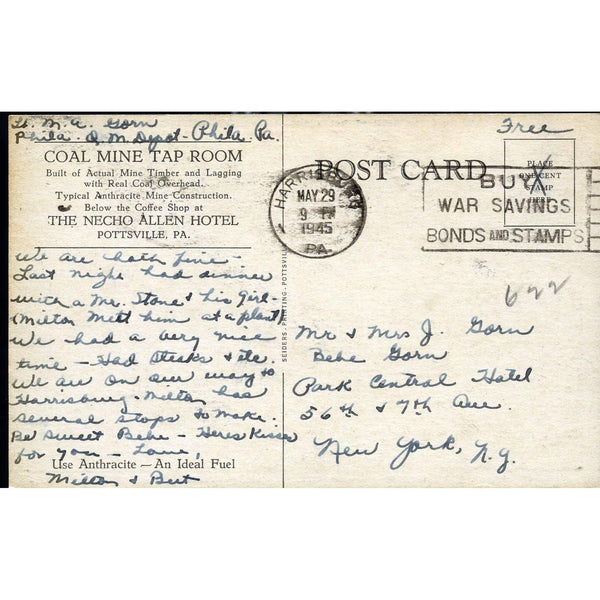 Lt. M. A. Gorn
Phila. Q. M. Depot - Phila. Pa.
COAL MINE TAP ROOM
Built of Actual Mine Timber and Lagging
with Real Coal Overhead.
Typical Anthracite Mine Construction.
Below the Coffee Shop at
THE NECHO ALLEN HOTEL
POTTSVILLE, PA.
We are both fine -
Last night had dinner
with a Mr. Stone & his girl -
(Milton Mett him at a plant)
We had a very nice
time - Had steaks & etc.
We are on our way to
Harrisburg - Milton has
several stops to make.
Be sweet Bebe - Heres kisses
for you - Love,
Use Anthracite — An Ideal Fuel
Milton & Bert
SEIDERS-PRINTING-POTTSVILLE
Free
POST CARD
PLACE
ONE CENT
STAMP
HERE
HARRISBURG
MAY 29
9
1945
PA.
BUY
WAR SAVINGS
BONDS AND STAMPS
622
Mr & Mrs J. Gorn
Bebe Gorn
Park Central Hotel
56th & 7th Ave.
New York, N.Y.